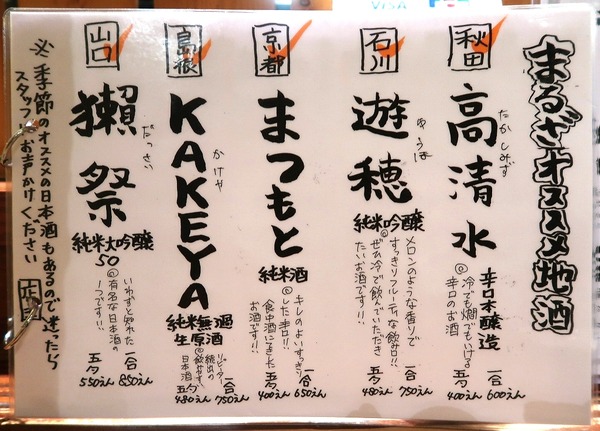 まるざオススメ地酒
秋田
高清水
たかしみず
辛口本醸造
冷でも燗でもいける
辛口のお酒
一合 600えん
五勺 400えん
石川
遊穂
ゆうほ
純米吟醸
メロンのような香りで
すっきりフルーティな飲み口!!
ぜひ冷で飲んでいただき
たいお酒です!!
一合 750えん
五勺 480えん
京都
まつもと
純米酒
キレのよいすっきり
とした辛口!!
食中酒にてきした
お酒です!!
一合 650えん
五勺 400えん
島根
KAKEYA
かけや
純米無濾過
生原酒
リピーター
続出の
日本酒
一合 750えん
五勺 480えん
山口
獺祭
だっさい
純米大吟醸
50
いわずと知れた
有名な日本酒の
一つです!!
一合 850えん
五勺 550えん
※季節のオススメの日本酒もあるので迷ったら
スタッフにお声かけください
VISA